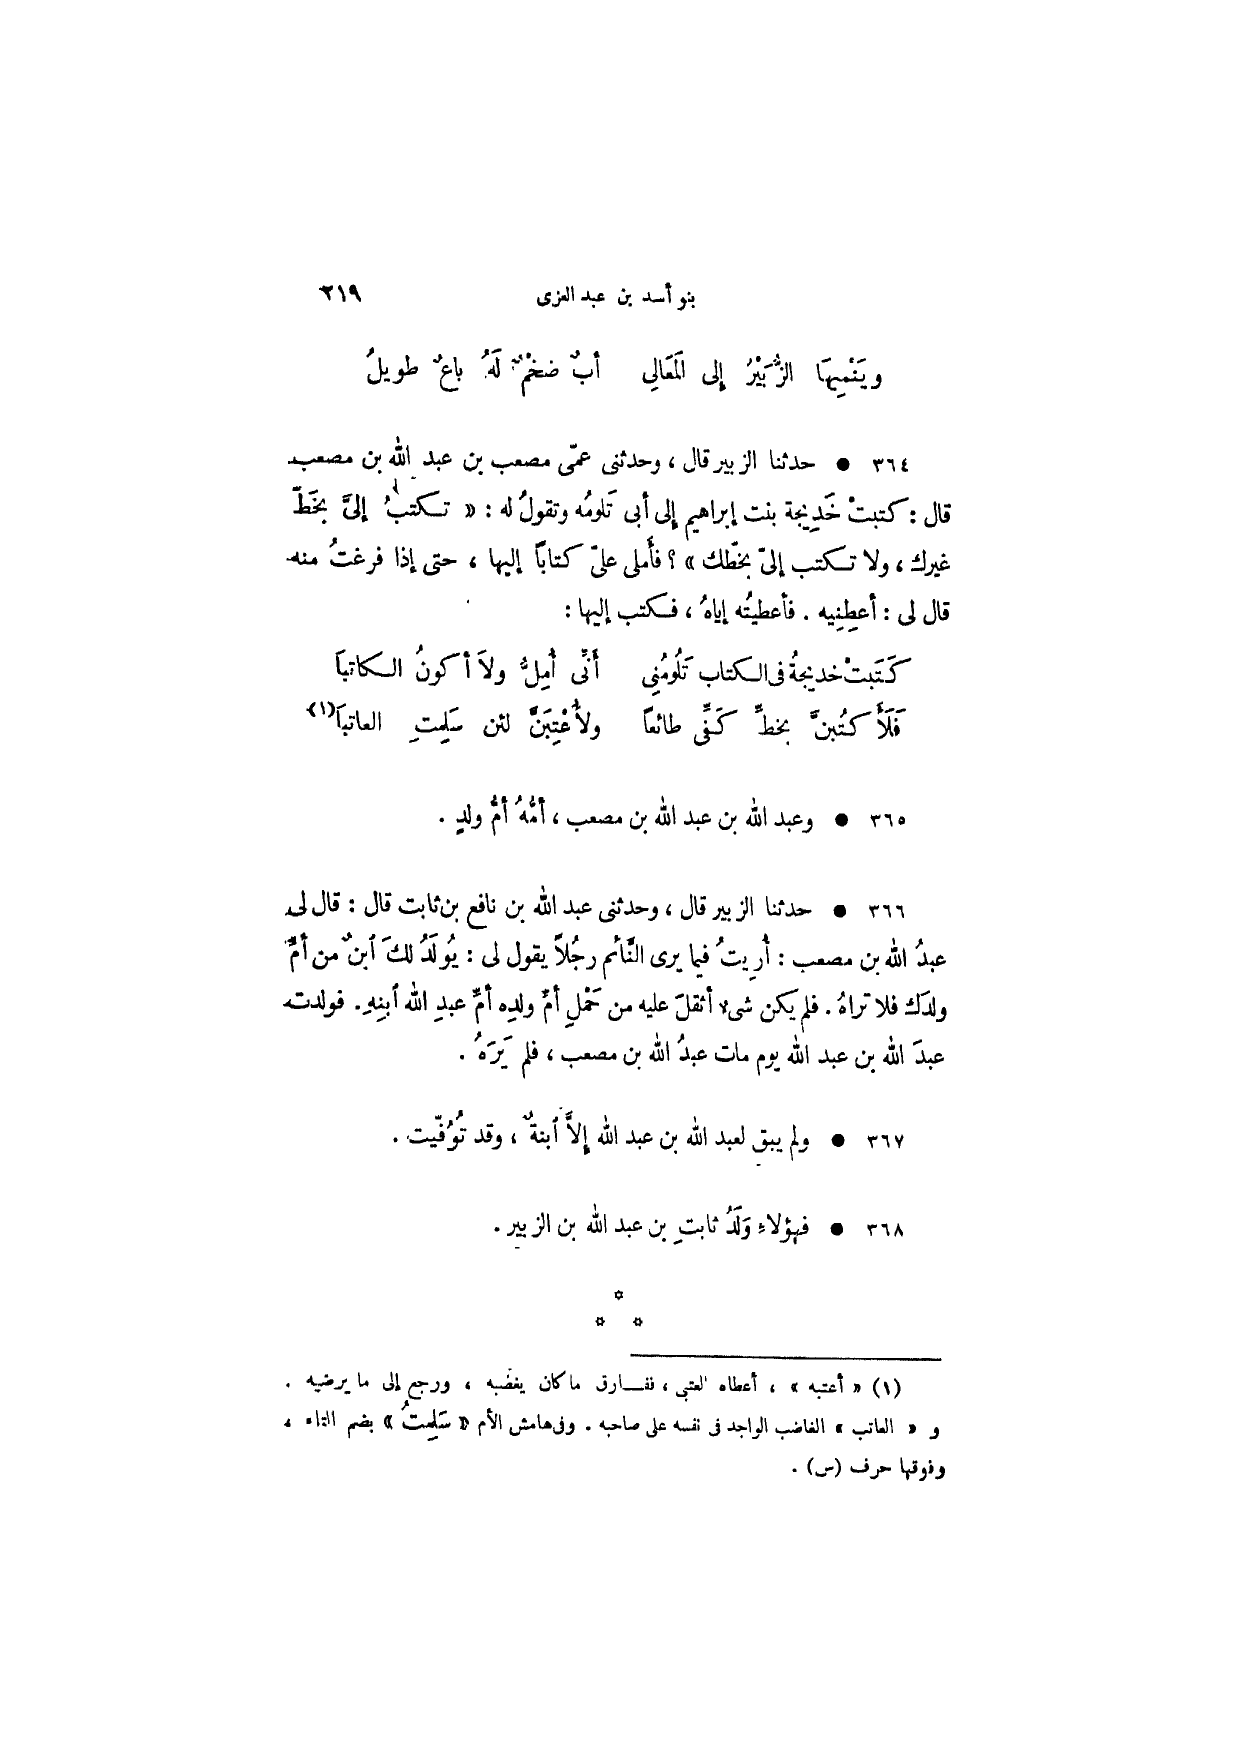 بنو أسد بن عبد العزى ٢١٩
ويَنْمِيهَا الزُّبَيْرُ إلى المَعَالِى أبٌ ضخْمٌ لَهُ باعٌ طويلُ
٣٦٤ ● حدثنا الزبير قال ، وحدثنى عمّى مصعب بن عبد الله بن مصعب
قال : كتبتْ خَدِيجة بنت إبراهيم إلى أبى تَلومُه وتقولُ له : « تكتبُ إلىَّ بخَطّ
غيرك ، ولا تكتب إلىّ بخطّك » ؟ فأَملى علىّ كتاباً إليها ، حتى إذا فرغتُ منه
قال لى : أعطِنِيه . فأعطيتُه إياهُ ، فكتب إليها :
كَتَبتْ خديجةُ فى الكتاب تَلُومُنِى أَنِّى أُمِلُّ ولاَ أكونُ الكاتبَا
فَلَأَكتُبنَّ بخطِّ كَفِّى طائعاً ولأُعْتِبَنَّ لئن سَلِمتِ العاتبَا(١)
٣٦٥ ● وعبد الله بن عبد الله بن مصعب ، أمُّهُ أمُّ ولدٍ .
٣٦٦ ● حدثنا الزبير قال ، وحدثنى عبد الله بن نافع بن ثابت قال : قال لى
عبدُ الله بن مصعب : أُرِيتُ فيما يرى النَّائم رجُلاً يقول لى : يُولَدُ لكَ ٱبنٌ من أمِّ
ولدَك فلا تراهُ . فلم يكن شىء أثقلَ عليه من حَمْلِ أمِّ ولدِه أمِّ عبدِ الله ٱبنِهِ . فولدت
عبدَ الله بن عبد الله يوم مات عبدُ الله بن مصعب ، فلم يَرَهُ .
٣٦٧ ● ولم يبق لعبد الله بن عبد الله إلاَّ ٱبنةٌ ، وقد تُوُفّيت .
٣٦٨ ● فهؤلاءِ وَلَدُ ثابتِ بن عبد الله بن الزبير .
(١) « أعتبه » ، أعطاه العتبى ، ففارق ما كان يغضبه ، ورجع إلى ما يرضيه .
و « العاتب » الغاضب الواجد فى نفسه على صاحبه . وفى هامش الأم « سَلِمتُ » بضم التاء ،
وفوقها حرف (س) .